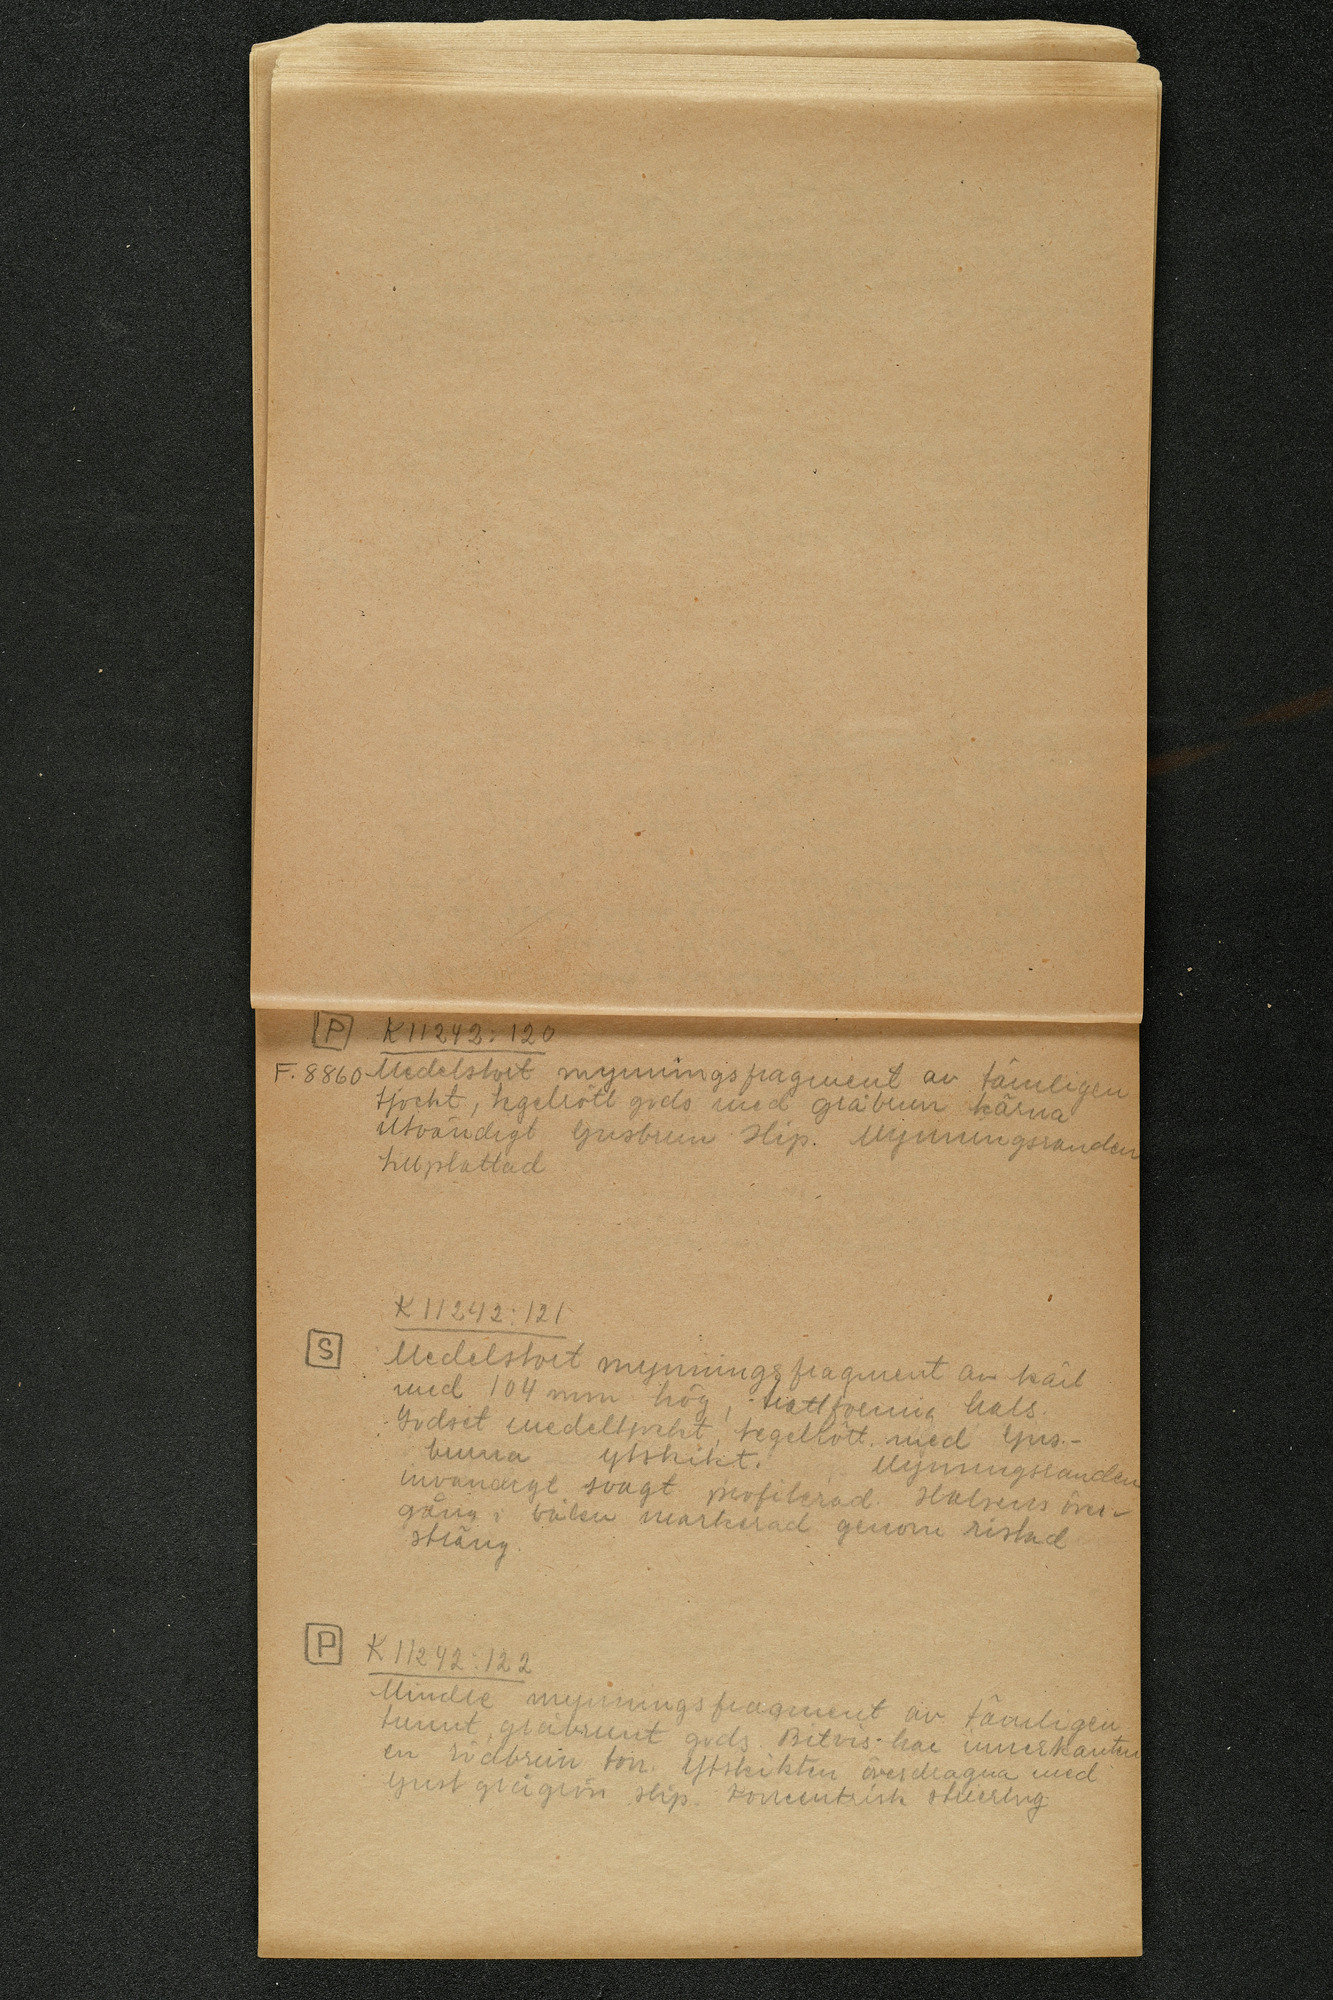 P K11242:120
F.8860 Medelstort mynningsfragment av tämligen
tjockt, tegelrött gods med gråbrun kärna
Utvändigt ljusbrun slip. Mynningsranden
tillplattad
K11242:121
S Medelstort mynningsfragment av kärl
med 104 mm hög, trattformig hals.
Godset medeltjockt, tegelrött, med ljus-
bruna ytskikt. Mynningsranden
invändigt svagt profilerad. Halsens över-
gång i buken markerad genom ristad
sträng.
P K11242:122
Mindre mynningsfragment av tämligen
tunnt, gråbrunt gods. Bitvis har innerkanten
en rödbrun ton. Ytskikten överdragna med
ljust grågrön slip. Koncentrisk striering